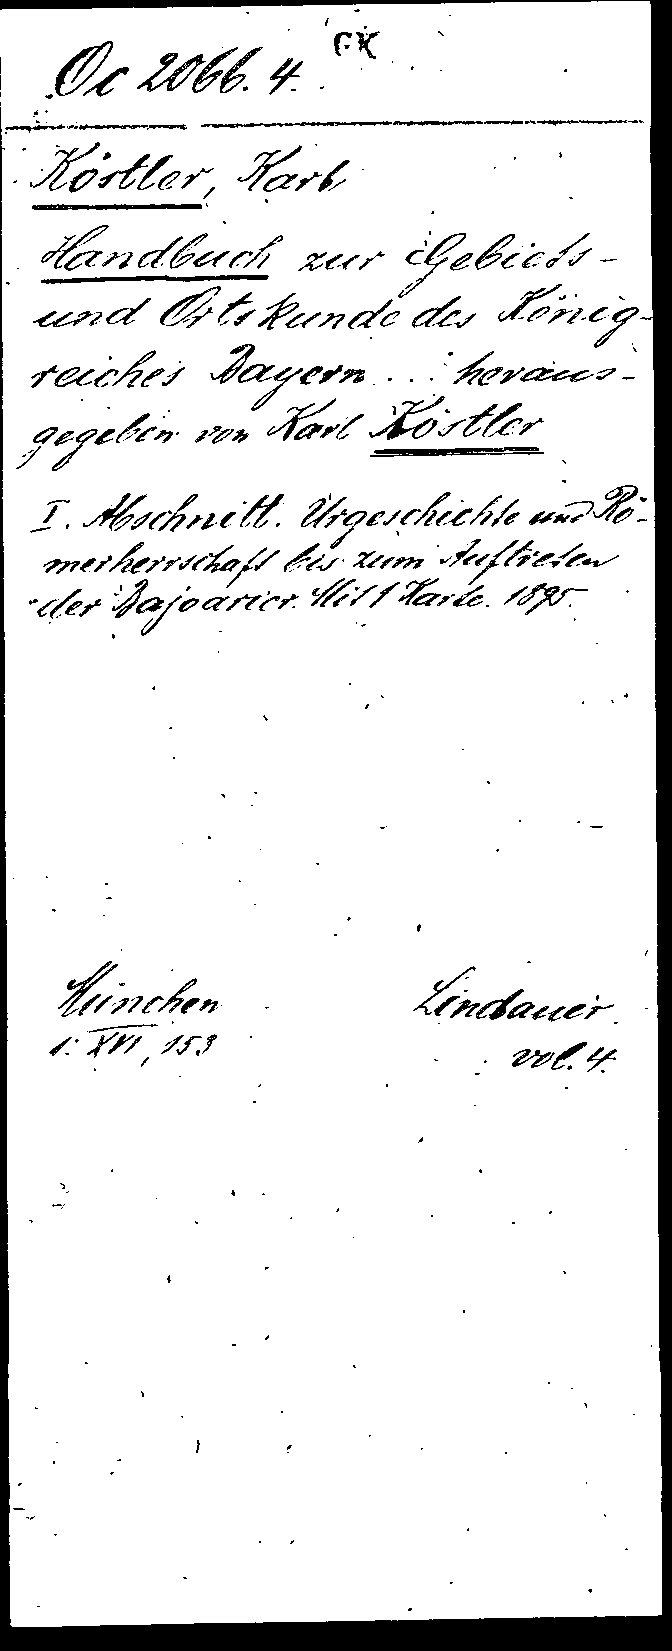 GK
Oc 2066.4.
Köstler, Karl
Handbuch zur Gebiets-
und Ortskunde des König-
reiches Bayern... heraus-
gegeben von Karl Köstler
I. Abschnitt. Urgeschichte und Rö-
merherrschaft bis zum Auftreten
der Bajoarier. Mit 1 Karte. 1895.
München Lindauer
1: XVI, 153 vol. 4.